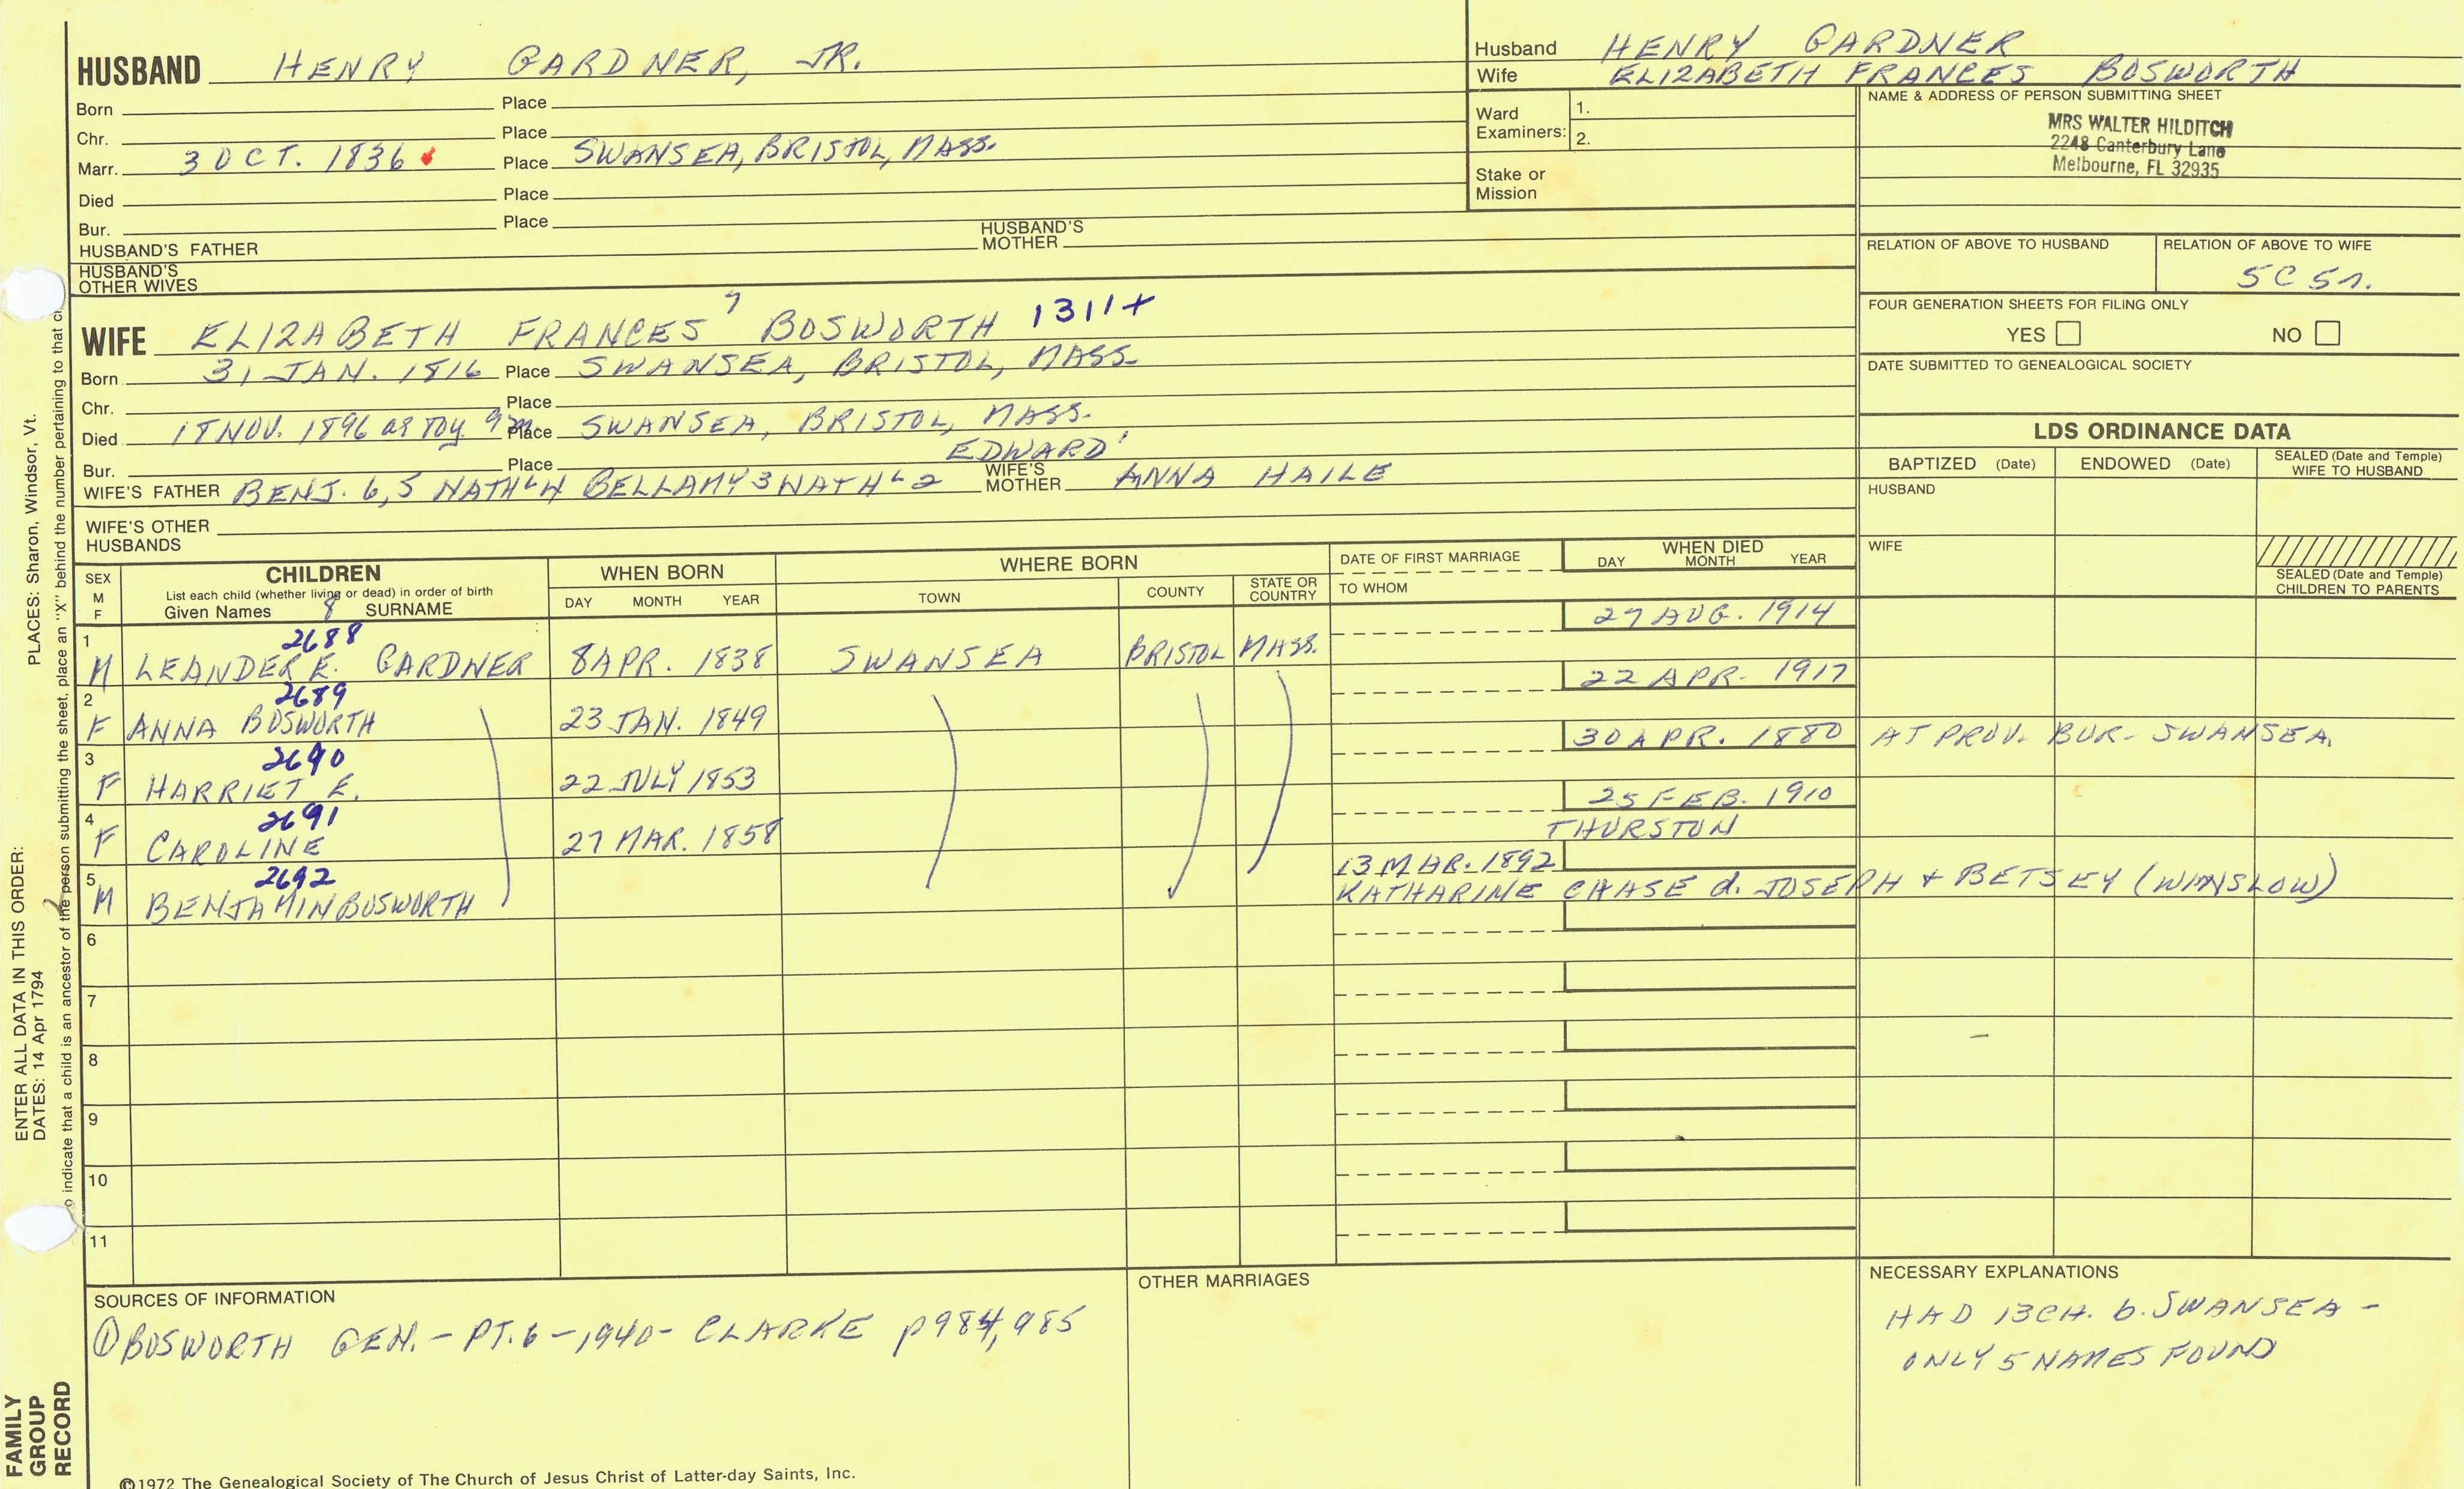 HUSBAND HENRY GARDNER, JR.
Born Place
Chr. Place
Marr. 3 OCT. 1836 Place SWANSEA, BRISTOL, MASS.
Died Place
Bur. Place
HUSBAND'S FATHER HUSBAND'S MOTHER
HUSBAND'S OTHER WIVES
Husband HENRY GARDNER
Wife ELIZABETH FRANCES BOSWORTH
Ward Examiners: 1.
2.
Stake or Mission
NAME & ADDRESS OF PERSON SUBMITTING SHEET
MRS WALTER HILDITCH
2248 Canterbury Lane
Melbourne, FL 32935
RELATION OF ABOVE TO HUSBAND RELATION OF ABOVE TO WIFE
5C 5r.
FOUR GENERATION SHEETS FOR FILING ONLY
YES NO
DATE SUBMITTED TO GENEALOGICAL SOCIETY
WIFE ELIZABETH FRANCES 7 BOSWORTH 1311+
Born 31 JAN. 1816 Place SWANSEA, BRISTOL, MASS.
Chr. Place
Died 18 NOV. 1896 a 80y 9m Place SWANSEA, BRISTOL, MASS.
Bur. Place EDWARD 1
WIFE'S FATHER BENJ. 6,5 NATHL 4 BELLAMY 3 NATHL 2 WIFE'S MOTHER ANNA HAILE
WIFE'S OTHER HUSBANDS
LDS ORDINANCE DATA
BAPTIZED (Date) ENDOWED (Date) SEALED (Date and Temple) WIFE TO HUSBAND
HUSBAND
WIFE
SEALED (Date and Temple) CHILDREN TO PARENTS
SEX M F CHILDREN WHEN BORN WHERE BORN DATE OF FIRST MARRIAGE WHEN DIED
List each child (whether living or dead) in order of birth
Given Names 8 SURNAME DAY MONTH YEAR TOWN COUNTY STATE OR COUNTRY TO WHOM DAY MONTH YEAR
27 AUG. 1914
2688
1 M LEANDER E. GARDNER 8 APR. 1838 SWANSEA BRISTOL MASS.
22 APR. 1917
2689
2 F ANNA BOSWORTH 23 JAN. 1849
30 APR. 1880 AT PROV. BUR. SWANSEA.
2690
3 F HARRIET E. 22 JULY 1853
25 FEB. 1910
2691
4 F CAROLINE 27 MAR. 1858 THURSTON
13 MAR. 1892
2692
5 M BENJAMIN BOSWORTH KATHARINE CHASE d. JOSEPH + BETSEY (WINSLOW)
6
7
8
9
10
11
SOURCES OF INFORMATION
① BOSWORTH GEN. - PT. 6 - 1940 - CLARKE p 984, 985
OTHER MARRIAGES
NECESSARY EXPLANATIONS
HAD 13 CH. b. SWANSEA -
ONLY 5 NAMES FOUND
©1972 The Genealogical Society of The Church of Jesus Christ of Latter-day Saints, Inc.
FAMILY GROUP RECORD
ENTER ALL DATA IN THIS ORDER:
DATES: 14 Apr 1794
PLACES: Sharon, Windsor, Vt.
o indicate that a child is an ancestor of the person submitting the sheet, place an "X" behind the number pertaining to that